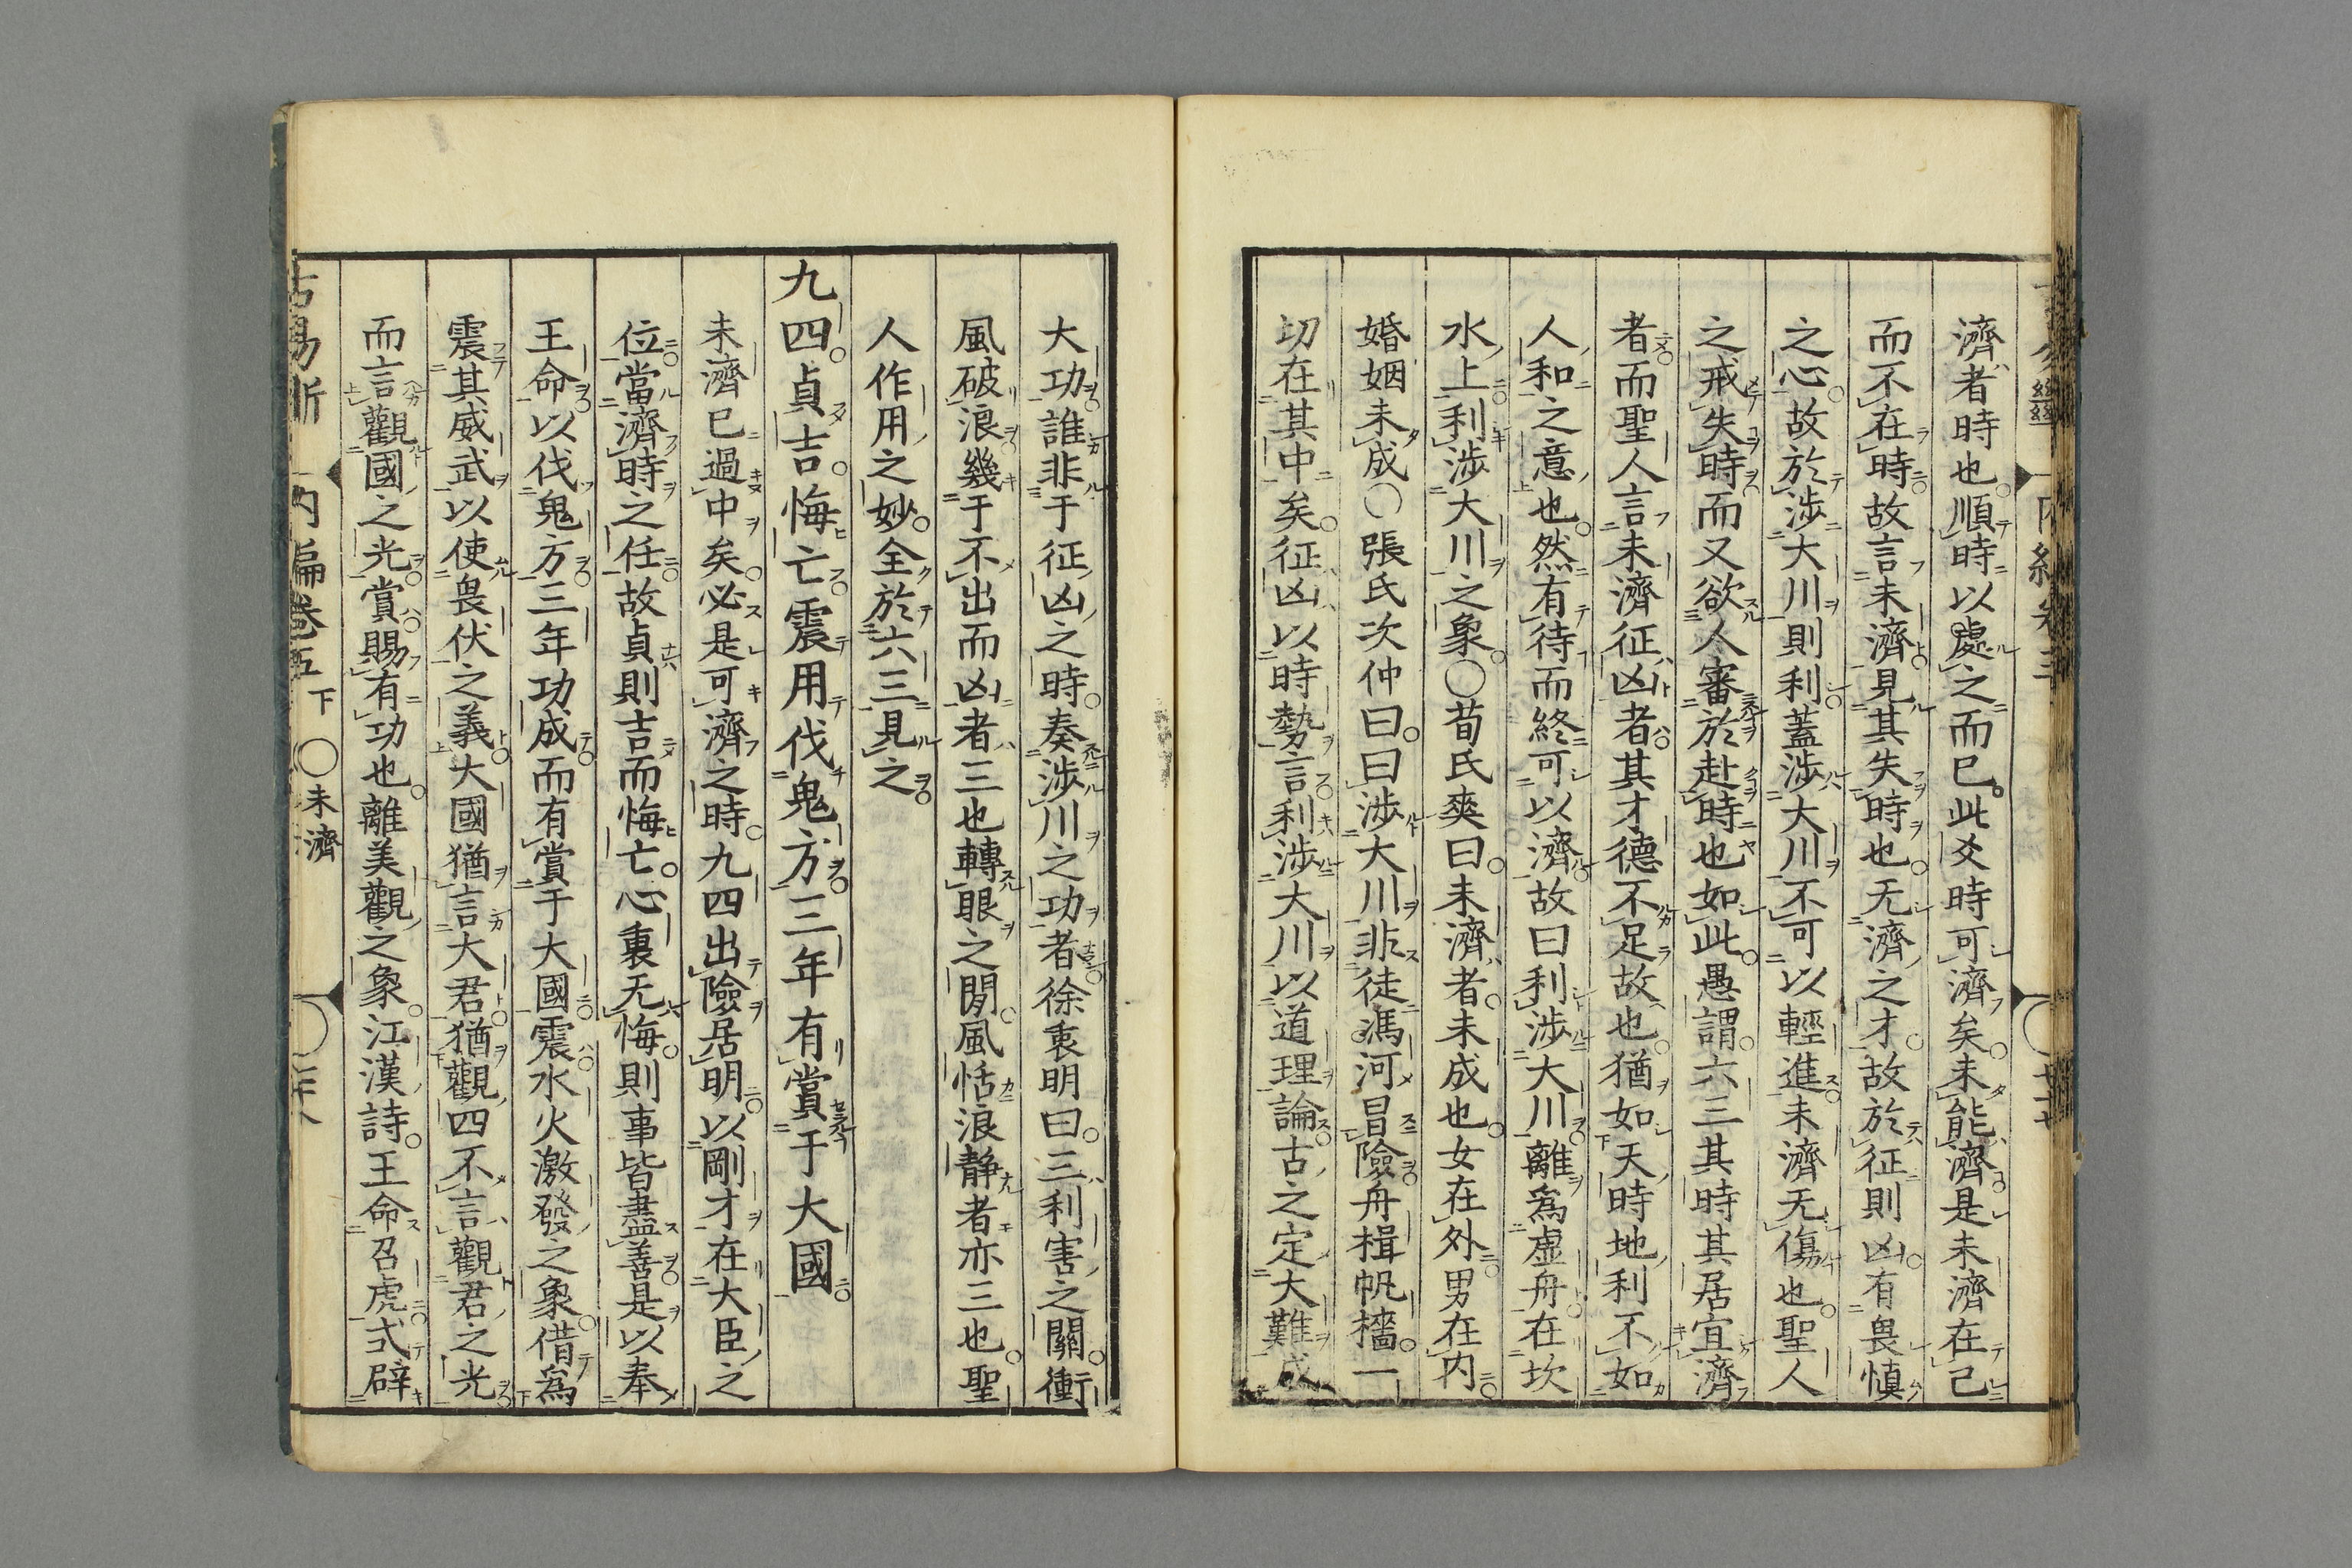 濟者時也順時以處之而已此爻時可濟矣未能濟是未濟在己
而不在時故言未濟見其失時也无濟之才故於征則凶有畏慎
之心故於涉大川則利蓋涉大川不可以輕進未濟无傷也聖人
之戒失時而又欲人審於赴時也如此愚謂六三其時其居宜濟
者而聖人言未濟征凶者其才德不足故也猶如天時地利不如
人和之意也然有待而終可以濟故曰利涉大川離爲虛舟在坎
水上利涉大川之象○荀氏爽曰未濟者未成也女在外男在内
婚姻未成○張氏次仲曰曰涉大川非徒馮河冒險舟楫帆檣一
切在其中矣征凶以時勢言利涉大川以道理論古之定大難成
大功誰非于征凶之時奏涉川之功者徐衷明曰三利害之關衝
風破浪幾于不出而凶者三也轉眼之閒風恬浪静者亦三也聖
人作用之妙全於六三見之
九四貞吉悔亡震用伐鬼方三年有賞于大國
未濟已過中矣必是可濟之時九四出險居明以剛才在大臣之
位當濟時之任故貞則吉而悔亡心裏无悔則事皆盡善是以奉
王命以伐鬼方三年功成而有賞于大國震水火激發之象借爲
震其威武以使畏伏之義大國猶言大君猶觀四不言觀君之光
而言觀國之光賞賜有功也離美觀之象江漢詩王命召虎式辟
古易斷 内編卷五下 ○未濟